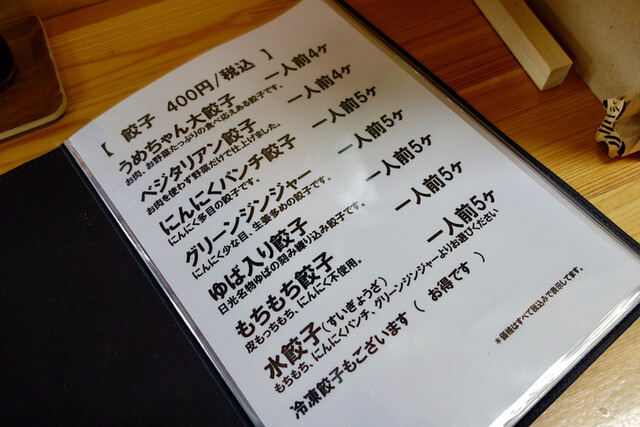 【 餃子 400円/税込 】
うめちゃん大餃子 一人前4ケ
お肉、お野菜たっぷりの食べ応えある餃子です。
ベジタリアン餃子 一人前4ケ
お肉を使わず野菜だけで仕上げました。
にんにくパンチ餃子 一人前5ケ
にんにく多目の餃子です。
グリーンジンジャー 一人前5ケ
にんにく少な目、生姜多めの餃子です。
ゆば入り餃子 一人前5ケ
日光名物ゆばの刻み練り込み餃子です。
もちもち餃子 一人前5ケ
皮もっちもち、にんにく不使用。
水餃子(すいぎょうざ) 一人前5ケ
もちもち、にんにくパンチ、グリーンジンジャーよりお選びください
冷凍餃子もございます ( お得です )
＊価格はすべて税込みで表示してます。